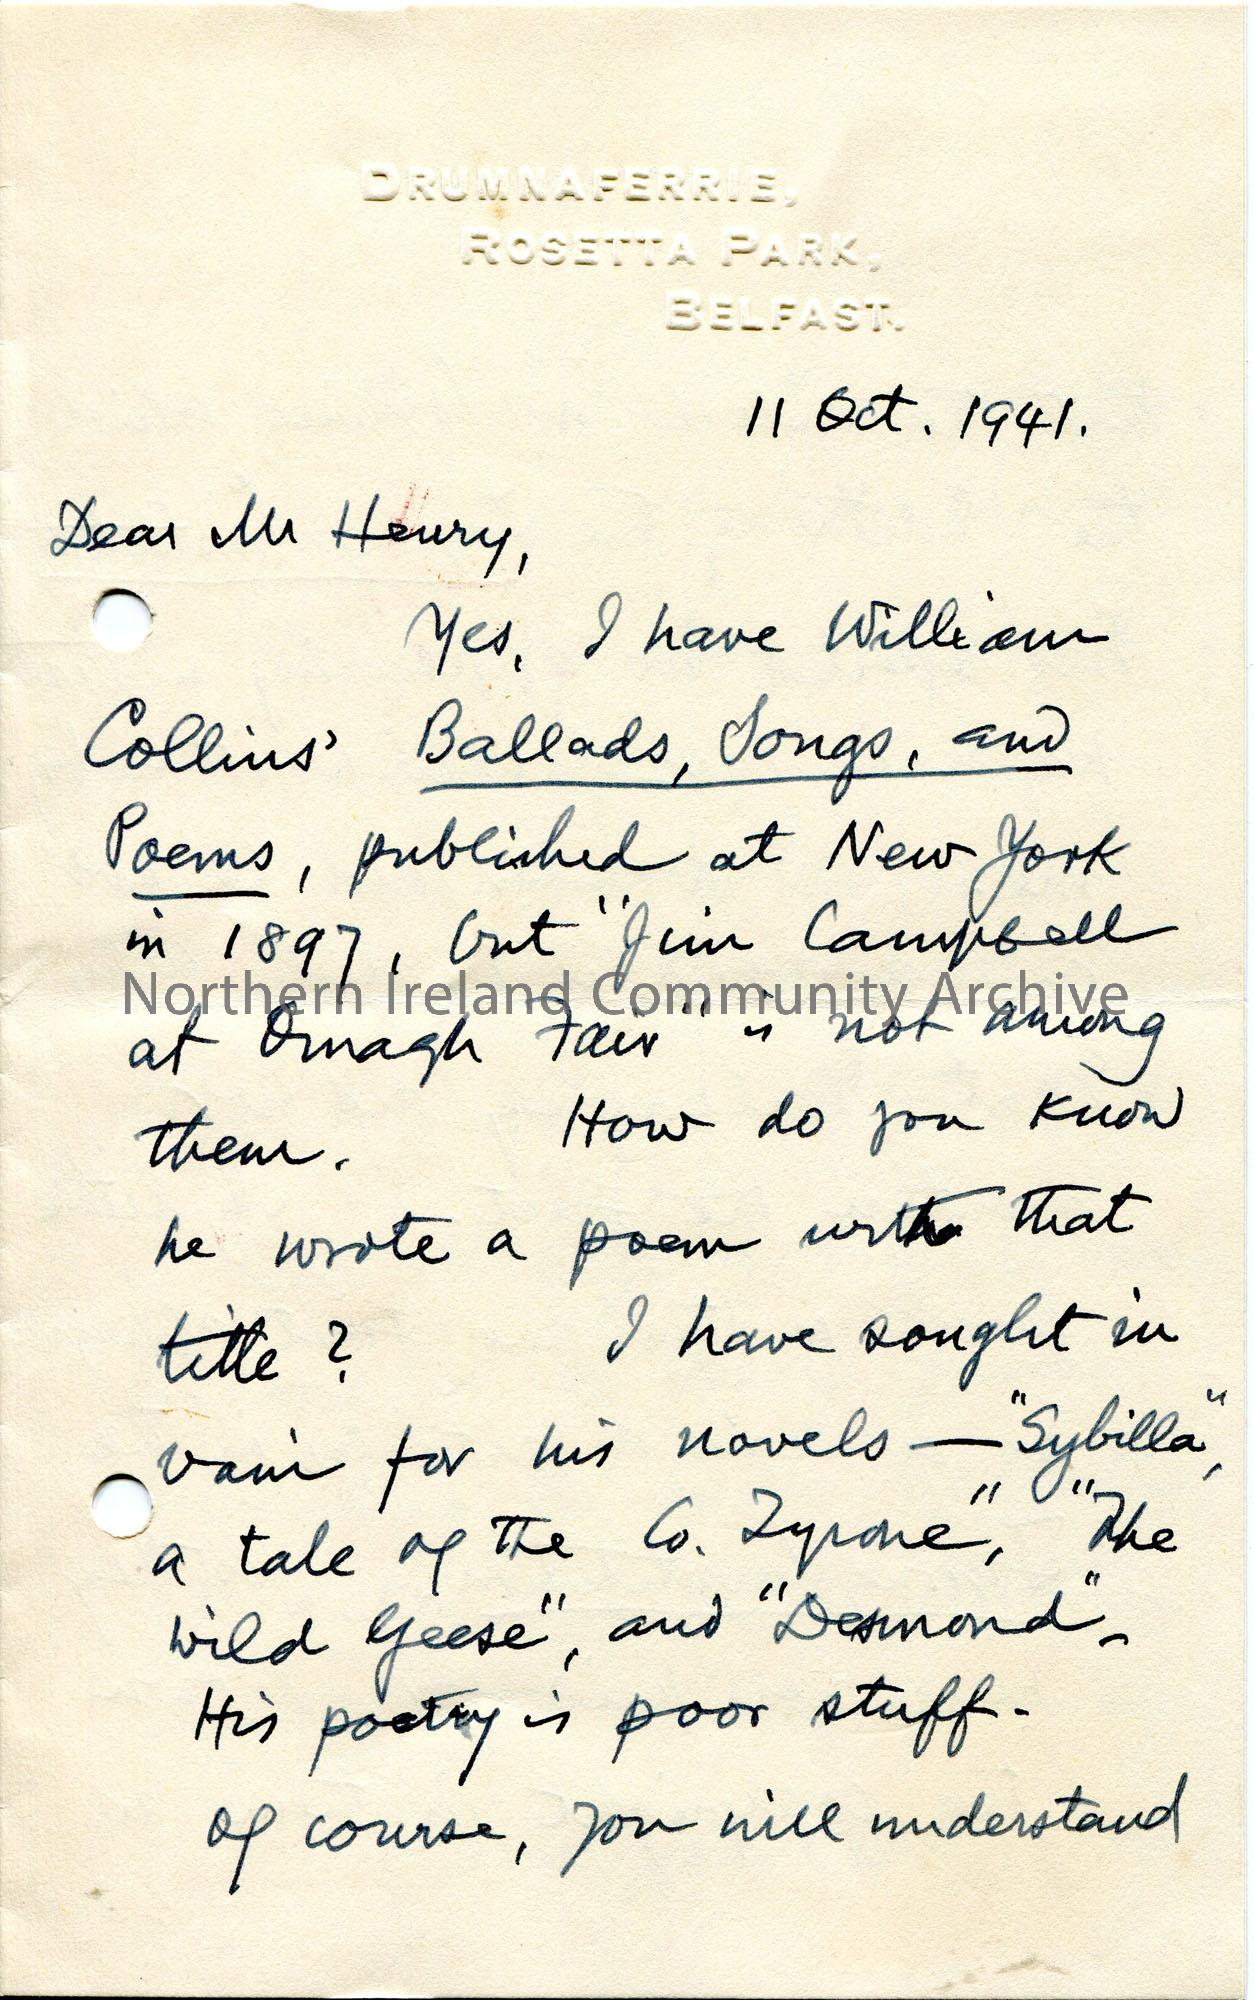 DRUMNAFERRIE,
ROSETTA PARK,
BELFAST.
11 Oct. 1941.
Dear Mr Henry,
Yes, I have William
Collins' Ballads, Songs, and
Poems, published at New York
in 1897, but "Jim Campbell
Northern Ireland Community Archive
at Omagh Fair" is not among
them. How do you know
he wrote a poem with that
title? I have sought in
vain for his novels — "Sybilla",
a tale of the Co. Tyrone", "The
Wild Geese", and "Desmond".
His poetry is poor stuff.
Of course, you will understand